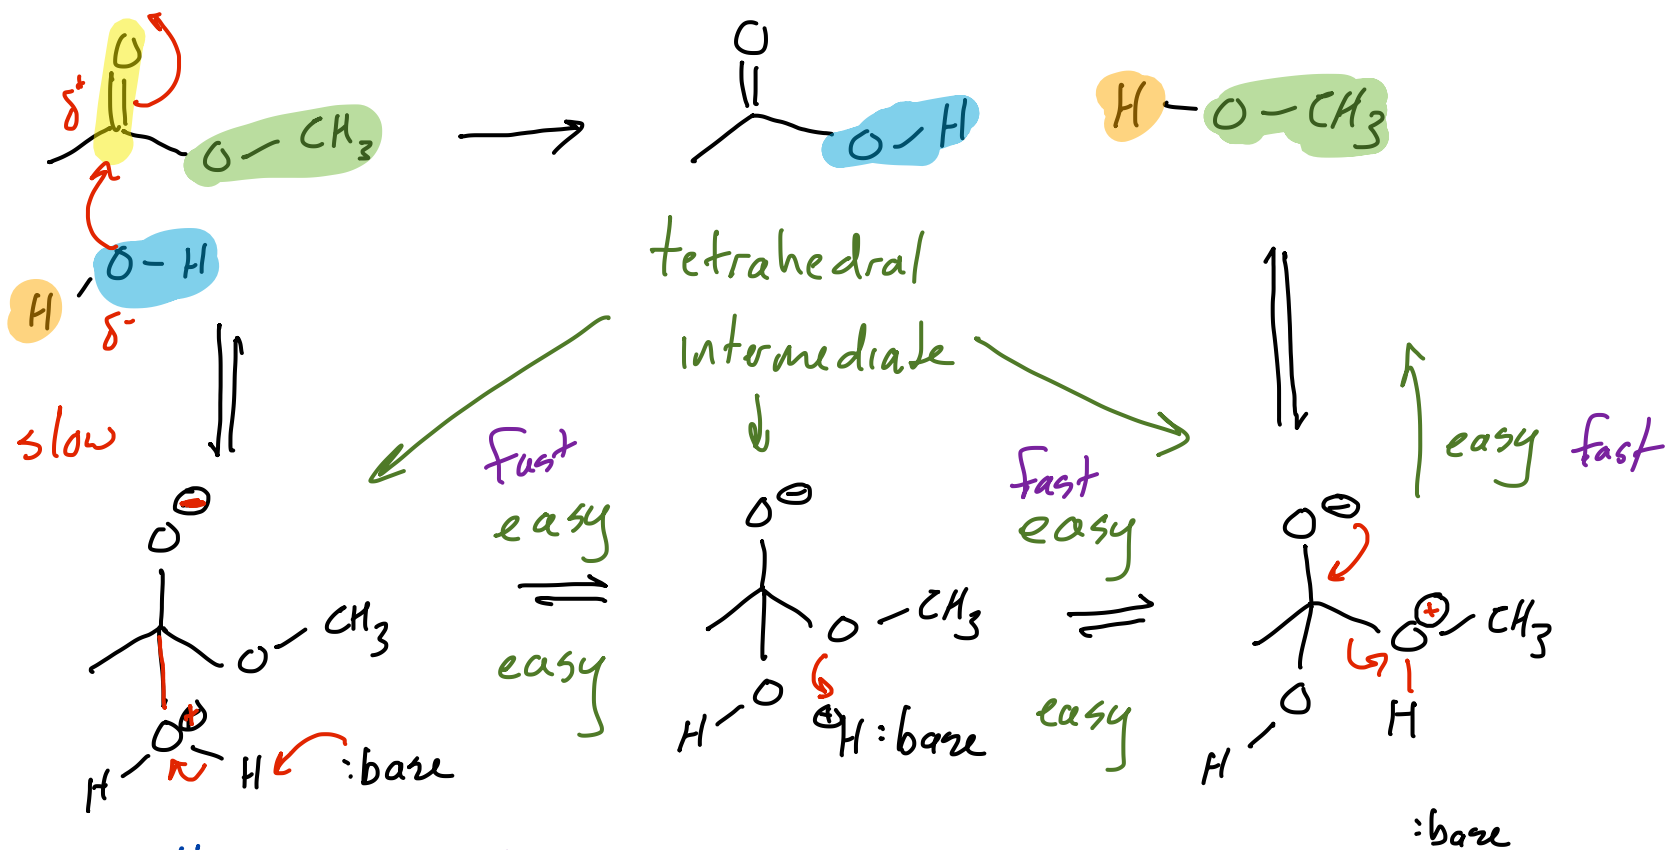 O
δ+
O — CH3
O — H
H
δ-
O
O — H
H — O — CH3
tetrahedral
intermediate
slow
fast
easy
easy
fast
easy
easy
easy fast
O ⊖
O CH3
O ⊕
H H :base
O ⊖
O CH3
H O
⊕ H :base
O ⊖
O ⊕ CH3
H
O
H
:base